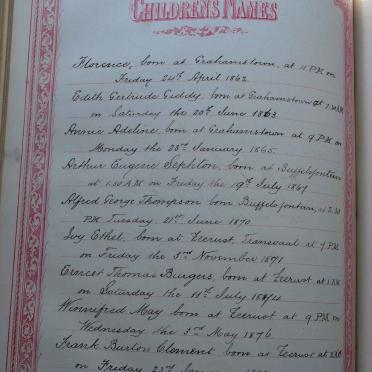 CHILDRENS NAMES
Florence, born at Grahamstown, at 11 P.M. on
Friday 24th April 1862.
Edith Gertrude Giddy, born at Grahamstown at 7.30 A.M.
on Saturday the 20th June 1863
Annie Adeline, born at Grahamstown at 9 P.M. on
Monday the 23rd January 1865.
Arthur Eugene Slephton, born at Buffelsfontein
at 1.30 A.M. on Friday the 19th July 1867
Alfred George Thompson born Buffelsfontein, at 2.30
P.M. Tuesday, 21st June 1870.
Ivy Ethel, born at Zeerust, Transvaal at 7 P.M.
on Friday the 3rd November 1871
Ernest Thomas Burgers, born at Zeerust at 1 A.M.
on Saturday the 11th July 1874
Winnefred May born at Zeerust at 9 P.M. on
Wednesday the 3rd May 1876
Frank Burton Clement born at Zeerust at
on Friday 25th January